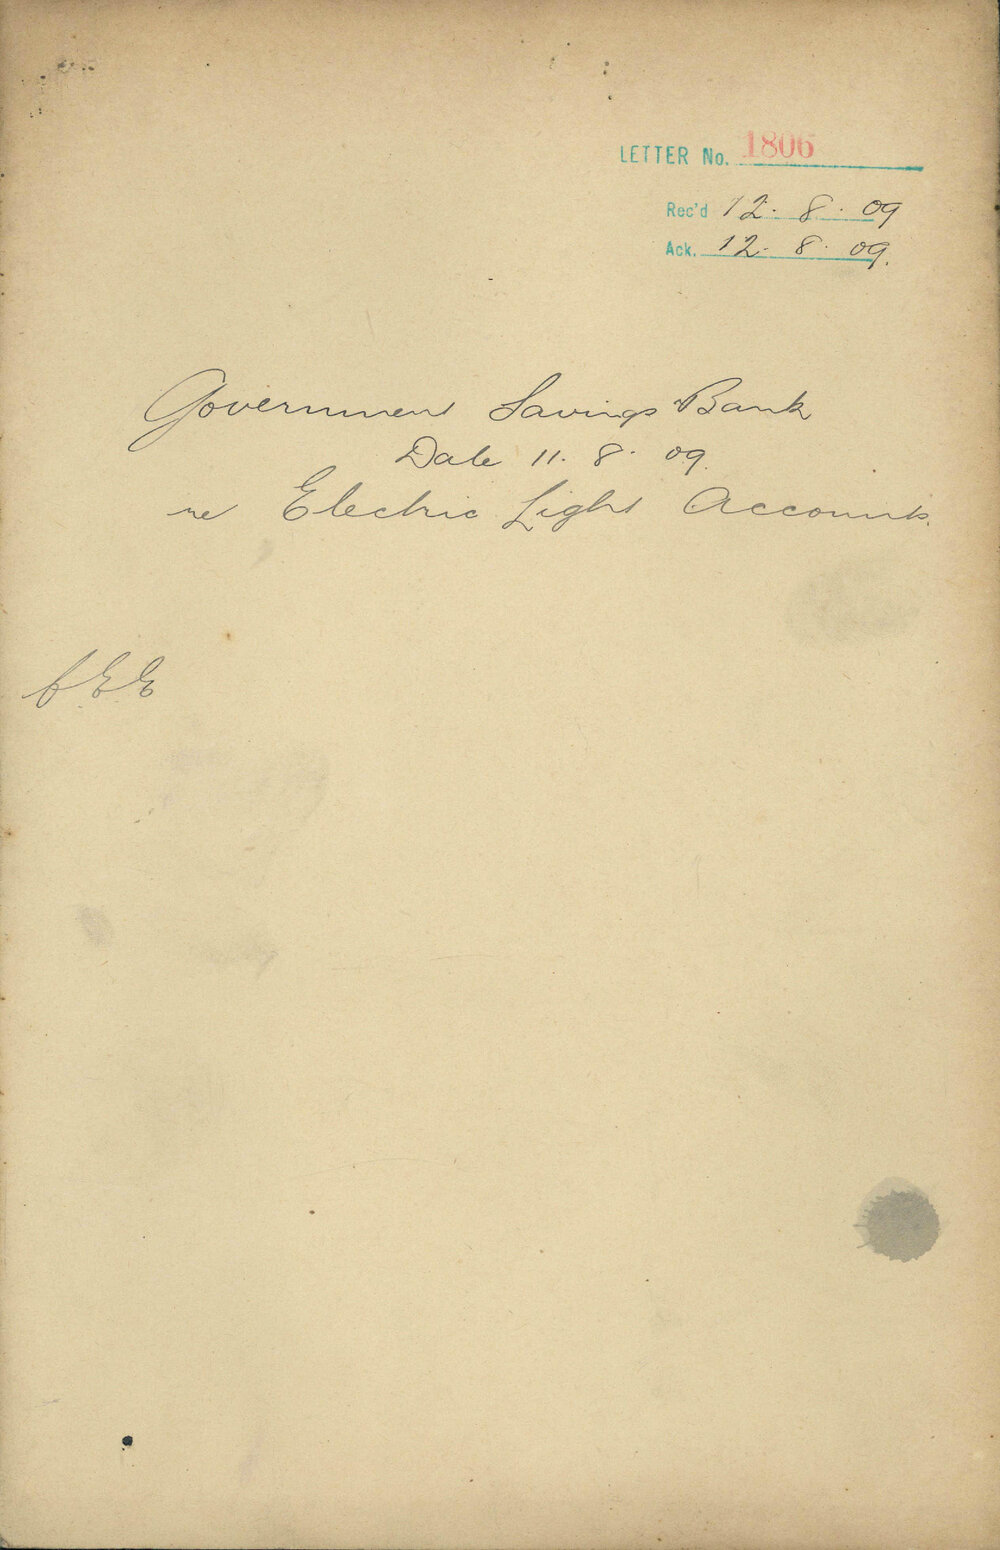 LETTER No. 1806
Rec'd 12. 8. 09
Ack. 12. 8. 09.
Government Savings Bank
Date 11. 8. 09.
re Electric Light Accounts.